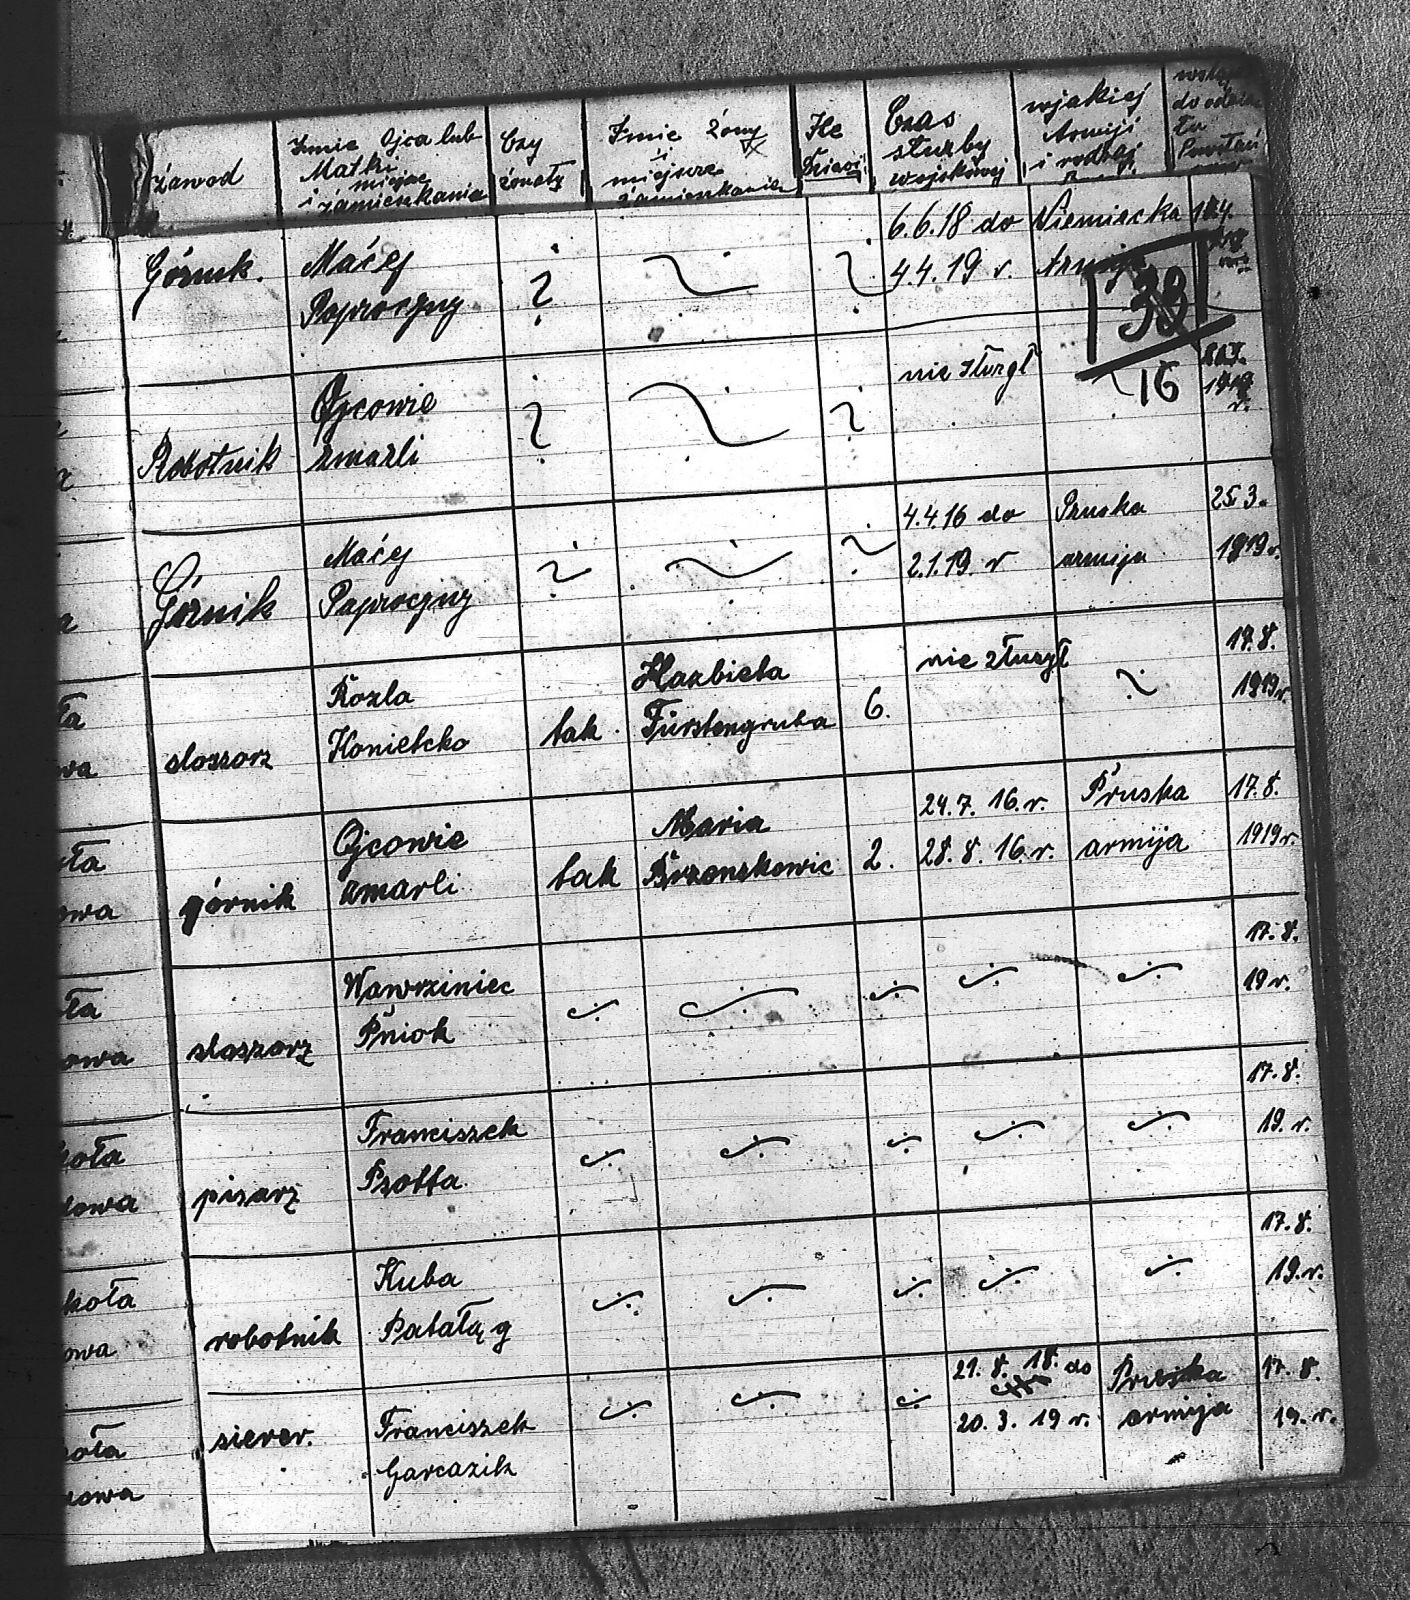 zawod
Imie Ojca lub
Matki
i miejsc
zamieszkania
Czy
żonaty
Imie żony
i
miejsce
zamieszkania
Ile
Dzieci
Czas
służby
wojskowej
wjakiej
Armiji
i rodzaj
do oddzia
łu
Powstań
Górnik.
Maćej
Paproczny
6.6.18 do
4.4.19 r.
Niemiecka
Armija
38
16
Robotnik
Ojcowie
zmarli
nie służył
1919
r.
Górnik
Maćej
Paproczny
4.4.16 do
2.1.19. r
Pruska
armija
25.3.
1919 r.
ła
wa
sloszorz
Rozla
Konietcko
tak.
Hazbieta
Fürstengruba
6.
nie służył
17.8.
1919 r.
ła
owa
górnik
Ojcowie
zmarli
tak
Maria
Brzenskowic
2.
24.7. 16. r.
28. 8. 16. r.
Pruska
armija
17. 8.
1919 r.
ła
owa
sloszorz
Wawrziniec
Pniok
17. 8.
19 r.
koła
owa
pisarz
Franciszek
Psotta
17. 8.
19. r.
koła
owa
robotnik
Kuba
Patałąg
17. 8.
19. r.
oła
owa
sierer.
Franciszek
Garcazik
21. 8. 18. do
20. 3. 19 r.
Pruska
armija
17. 8.
19. r.